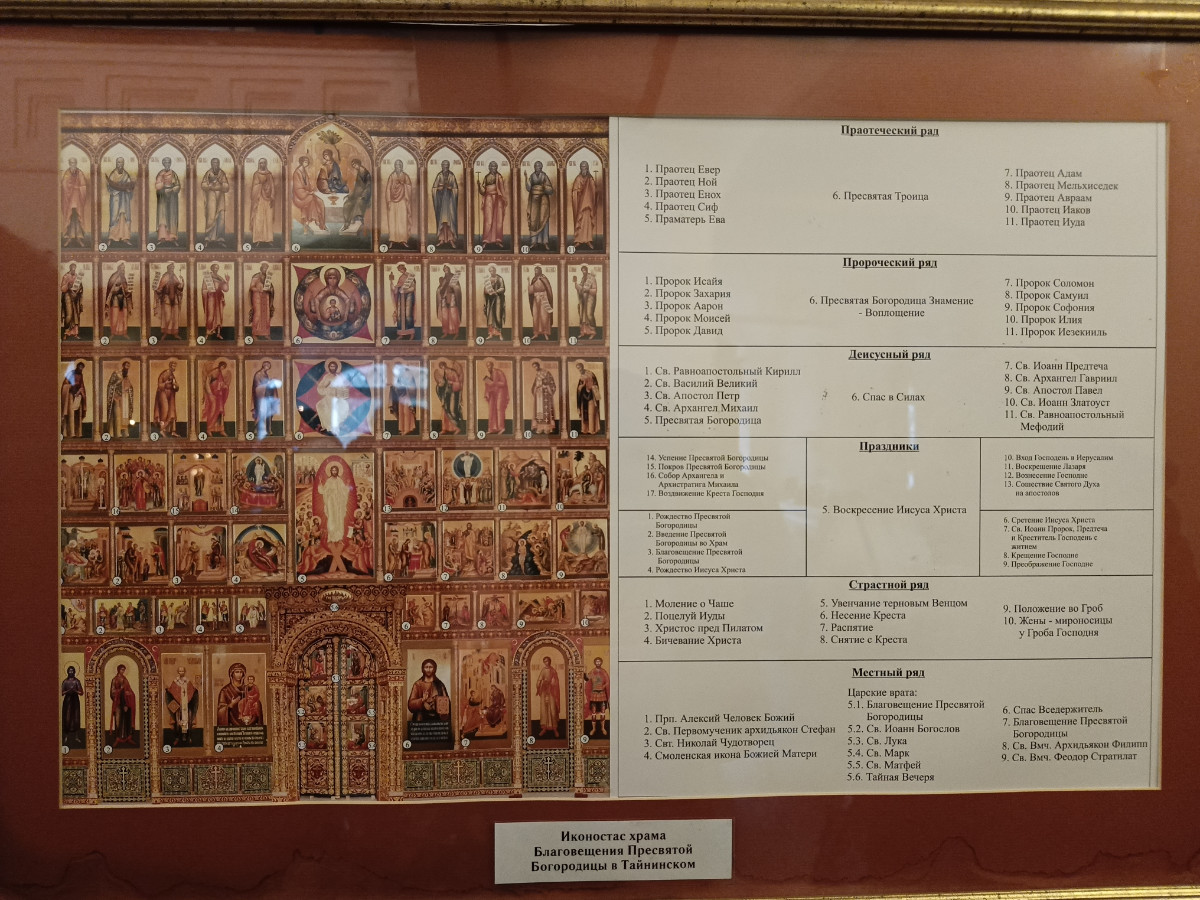 Праотеческий рад
1. Праотец Евер
2. Праотец Ной
3. Праотец Енох
4. Праотец Сиф
5. Праматерь Ева
6. Пресвятая Троица
7. Праотец Адам
8. Праотец Мельхиседек
9. Праотец Авраам
10. Праотец Иаков
11. Праотец Иуда
Пророческий ряд
1. Пророк Исайя
2. Пророк Захария
3. Пророк Аарон
4. Пророк Моисей
5. Пророк Давид
6. Пресвятая Богородица Знамение
- Воплощение
7. Пророк Соломон
8. Пророк Самуил
9. Пророк Софония
10. Пророк Илия
11. Пророк Иезекииль
Деисусный ряд
1. Св. Равноапостольный Кирилл
2. Св. Василий Великий
3. Св. Апостол Петр
4. Св. Архангел Михаил
5. Пресвятая Богородица
6. Спас в Силах
7. Св. Иоанн Предтеча
8. Св. Архангел Гавриил
9. Св. Апостол Павел
10. Св. Иоанн Златоуст
11. Св. Равноапостольный
Мефодий
Праздники
14. Успение Пресвятой Богородицы
15. Покров Пресвятой Богородицы
16. Собор Архангела и
Архистратига Михаила
17. Воздвижение Креста Господня
1. Рождество Пресвятой
Богородицы
2. Введение Пресвятой
Богородицы во Храм
3. Благовещение Пресвятой
Богородицы
4. Рождество Иисуса Христа
5. Воскресение Иисуса Христа
10. Вход Господень в Иерусалим
11. Воскрешение Лазаря
12. Вознесение Господне
13. Сошествие Святого Духа
на апостолов
6. Сретение Иисуса Христа
7. Св. Иоанн Пророк, Предтеча
и Креститель Господень с
житием
8. Крещение Господне
9. Преображение Господне
Страстной ряд
1. Моление о Чаше
2. Поцелуй Иуды
3. Христос пред Пилатом
4. Бичевание Христа
5. Увенчание терновым Венцом
6. Несение Креста
7. Распятие
8. Снятие с Креста
9. Положение во Гроб
10. Жены - мироносицы
у Гроба Господня
Местный ряд
1. Прп. Алексий Человек Божий
2. Св. Первомученик архидьякон Стефан
3. Свт. Николай Чудотворец
4. Смоленская икона Божией Матери
Царские врата:
5.1. Благовещение Пресвятой
Богородицы
5.2. Св. Иоанн Богослов
5.3. Св. Лука
5.4. Св. Марк
5.5. Св. Матфей
5.6. Тайная Вечеря
6. Спас Вседержитель
7. Благовещение Пресвятой
Богородицы
8. Св. Вмч. Архидьякон Филипп
9. Св. Вмч. Феодор Стратилат
Иконостас храма
Благовещения Пресвятой
Богородицы в Тайнинском